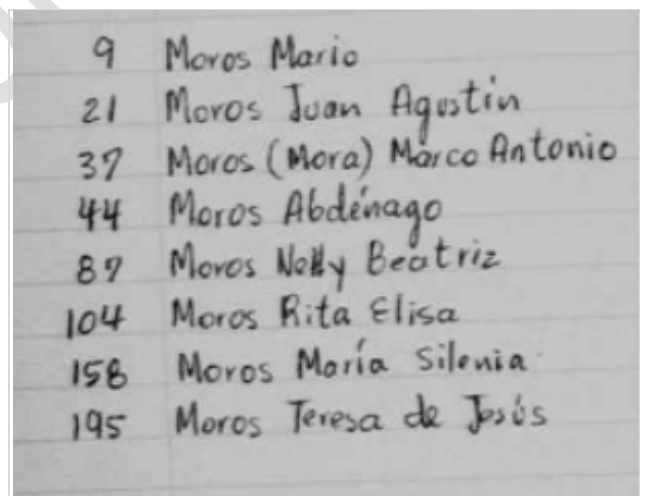 9 Moros Mario
21 Moros Juan Agustín
37 Moros (Mora) Marco Antonio
44 Moros Abdénago
87 Moros Nelly Beatriz
104 Moros Rita Elisa
158 Moros María Silenia
195 Moros Teresa de Jesús